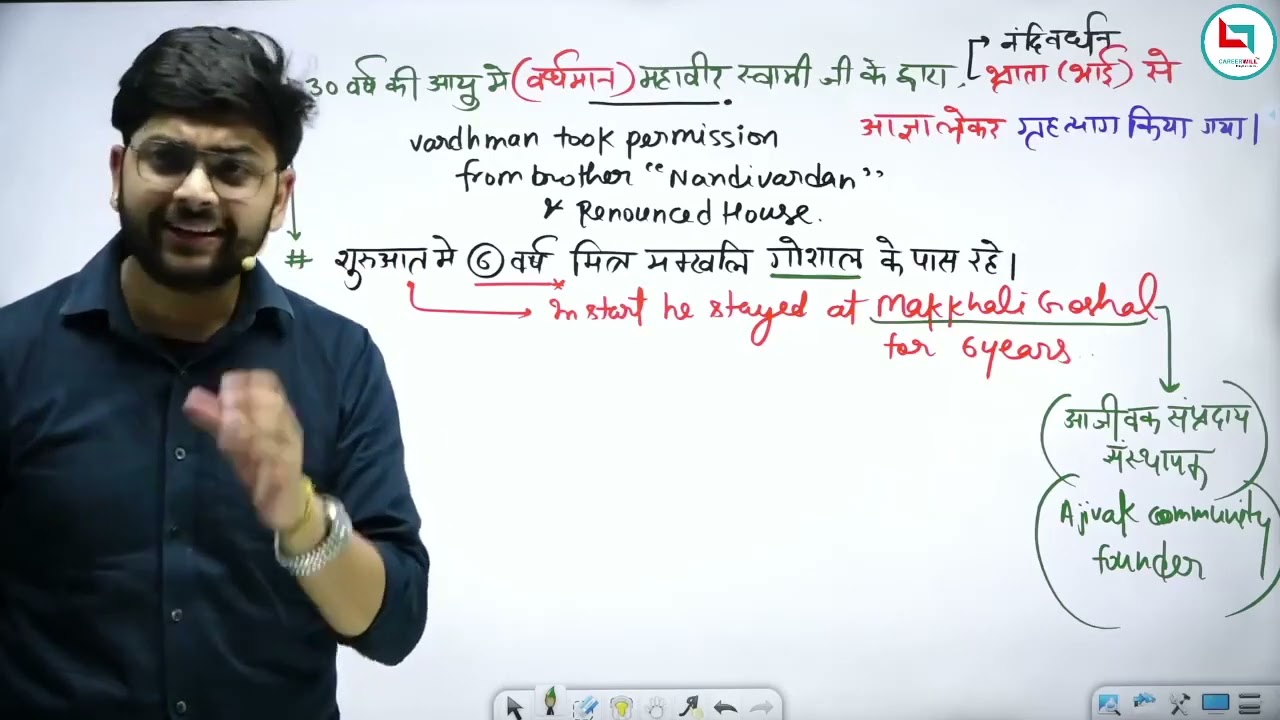 नंदिवर्धन
30 वर्ष की आयु मे (वर्धमान) महावीर स्वामी जी के द्वारा भ्राता (भाई) से
आज्ञा लेकर गृहत्याग किया गया।
vardhman took permission
from brother "Nandivardan"
& Renounced House.
# शुरुआत मे ⑥ वर्ष मित्र मक्खलि गोशाल के पास रहे।
In start he stayed at Makkhali Goshal
for 6 years
(आजीवक संप्रदाय
संस्थापक)
(Ajivak community
founder)
CAREERWILL